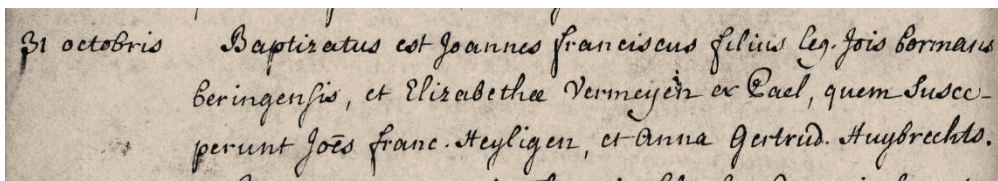 31 octobris Baptizatus est Joannes franciscus filius leg. Jois bormans
beringensis, et Elizabethæ Vermeyen ex Pael, quem susce-
perunt Joēs franc. Heyligen, et Anna Gertrud. Huybrechts.